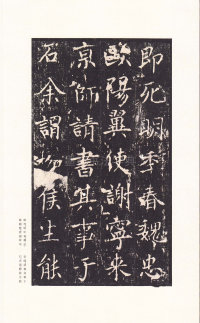 即死明秊春魏忠
歐陽翼使謝寧來
京師請書其事于
石余謂柳侯生能